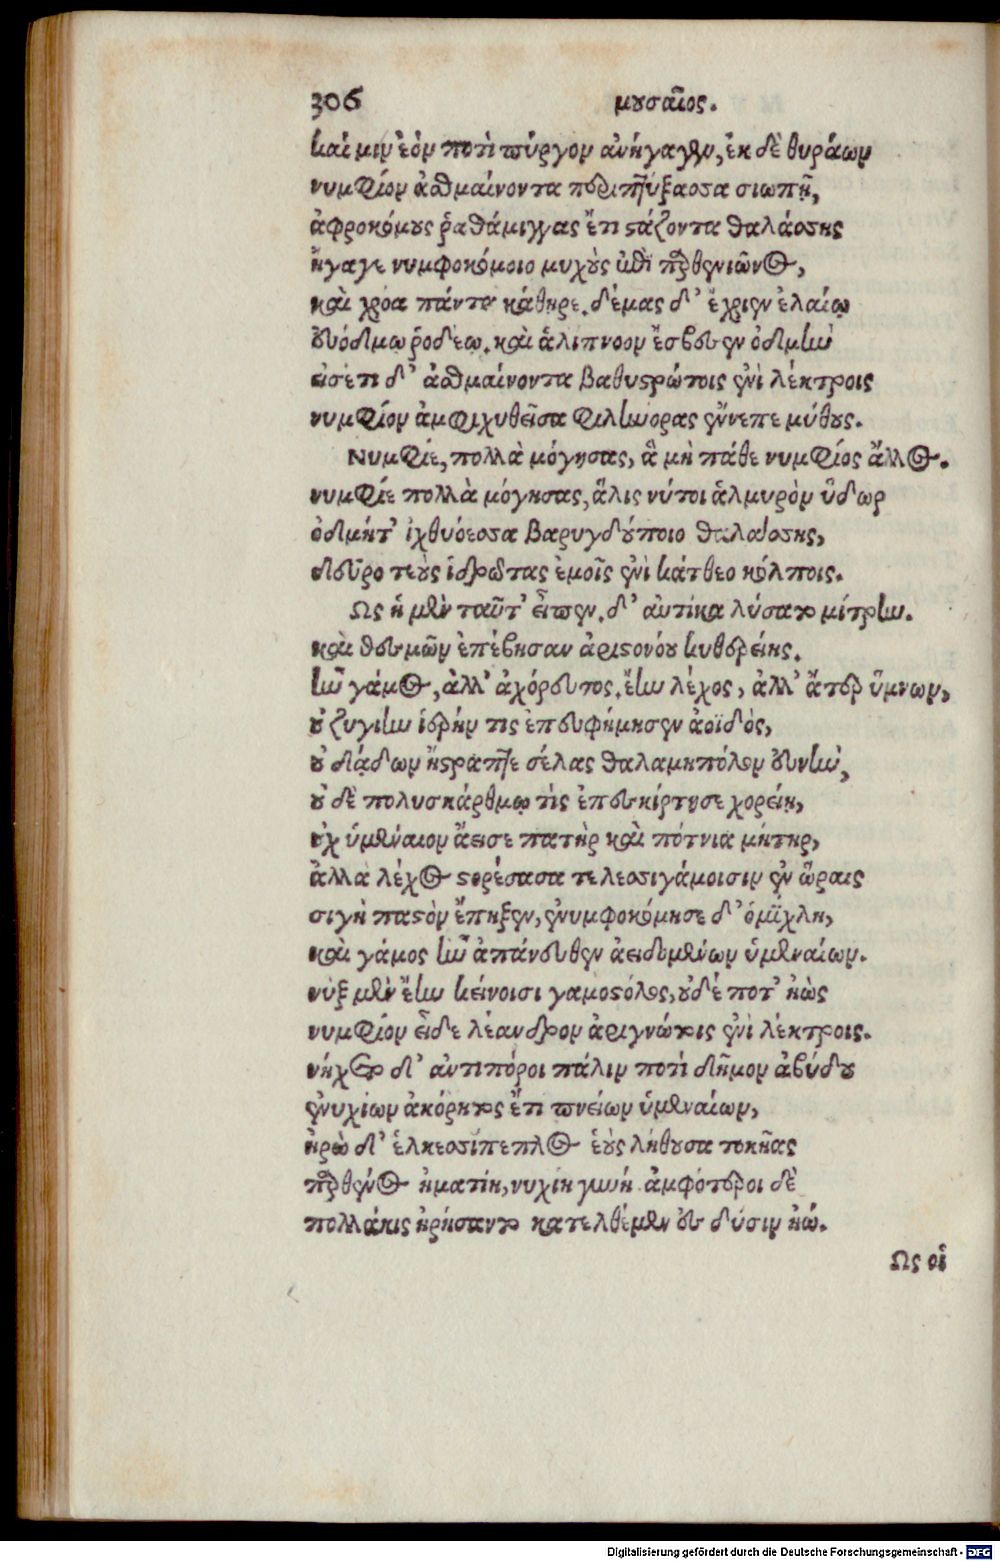 306 μουσαῖος.
καί μιν ἑὸν ποτὶ πύργον ἀνήγαγεν, ἐκ δὲ θυράων
νυμφίον ἀσθμαίνοντα περιπτύξασα σιωπῇ,
ἀφροκόμους ῥαθάμιγγας ἔτι στάζοντα θαλάσσης
ἤγαγε νυμφοκόμοιο μυχοὺς ἐπὶ παρθενιῶνος,
καὶ χρόα πάντα κάθηρε. δέμας δ' ἔχριεν ἐλαίῳ
εὐόδμῳ ῥοδέῳ. καὶ ἁλίπνοον ἔσβεσεν ὀδμὴν
εἰσέτι δ' ἀσθμαίνοντα βαθυστρώτοις ἐνὶ λέκτροις
νυμφίον ἀμφιχυθεῖσα φιλήνορας ἔννεπε μύθους.
Νυμφίε, πολλὰ μόγησας, ἃ μὴ πάθε νυμφίος ἄλλος.
νυμφίε πολλὰ μόγησας, ἅλις νύ τοι ἁλμυρὸν ὕδωρ
ὀδμή τ' ἰχθυόεσσα βαρυγδούποιο θαλάσσης,
δεῦρο τεοὺς ἱδρῶτας ἐμοῖς ἐνὶ κάτθεο κόλποις.
Ὣς ἡ μὲν ταῦτ' εἶπεν. δ' αὐτίκα λύσατο μίτρην.
καὶ θεσμῶν ἐπέβησαν ἀριστονόου κυθερείης.
ἦν γάμος, ἀλλ' ἀχόρευτος. ἔην λέχος, ἀλλ' ἄτερ ὕμνων,
οὐ ζυγίην ἱερήν τις ἐπευφήμησεν ἀοιδὸς,
οὐ δᾴδων ἤστραπτε σέλας θαλαμηπόλον εὐνὴν,
οὐδὲ πολυσκάρθμῳ τὶς ἐπεσκίρτησε χορείῃ,
οὐχ ὑμέναιον ἄεισε πατὴρ καὶ πότνια μήτηρ,
ἀλλὰ λέχος στορέσασα τελεσσιγάμοισιν ἐν ὥραις
σιγὴ παστὸν ἔπηξεν, ἐνυμφοκόμησε δ' ὁμίχλη,
καὶ γάμος ἦν ἀπάνευθεν ἀειδομένων ὑμεναίων.
νὺξ μὲν ἔην κείνοισι γαμοστόλος, οὐδέ ποτ' ἠὼς
νυμφίον εἶδε λέανδρον ἀριγνώτοις ἐνὶ λέκτροις.
νήχετο δ' ἀντιπόροι πάλιν ποτὶ δῆμον ἀβύδου
ἐννυχίων ἀκόρητος ἔτι πνείων ὑμεναίων,
ἡρὼ δ' ἑλκεσσίπεπλος ἑοὺς λήθουσα τοκῆας
παρθένος ἠματίη, νυχίη γυνή. ἀμφότεροι δὲ
πολλάκις ἠρήσαντο κατελθέμεν ἐς δύσιν ἠώ.
Ὣς οἱ
Digitalisierung gefördert durch die Deutsche Forschungsgemeinschaft - DFG